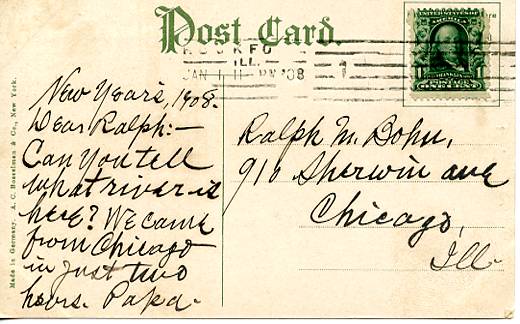 Post Card.
ROCKFO
ILL.
JAN 1 11- '08
1
New Year's, 1908.
Dear Ralph:-
Can you tell
what river is
here? We came
from Chicago
in just two
hours. Papa.
Ralph M. Bohn,
910 Sherwin ave
Chicago,
Ill.
Made in Germany. A. C. Bosselman & Co., New York.